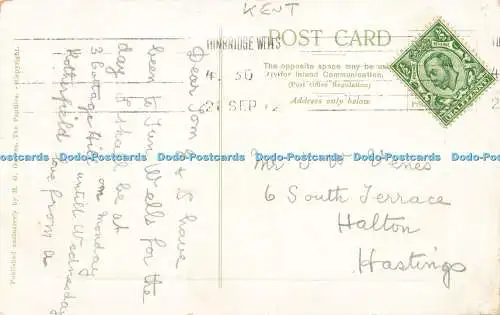 KENT
TUNBRIDGE WELLS
4. 30
21 SEP 12
POST CARD
The opposite space may be used
for Inland Communication.
(Post Office Regulation)
Address only below.
HALFPENNY
Dear Tom A & I have
been to Tun. Wells for the
day I shall be at
3 Cottage Hill on Monday
Rotherfield until Wednesday
love from A
Mr J W Venes
6 South Terrace
Halton
Hastings
Published exclusively by H. G. The Pantiles. Copyright.
Dodo-Postcards Dodo-Postcards Dodo-Postcards Dodo-Postcards